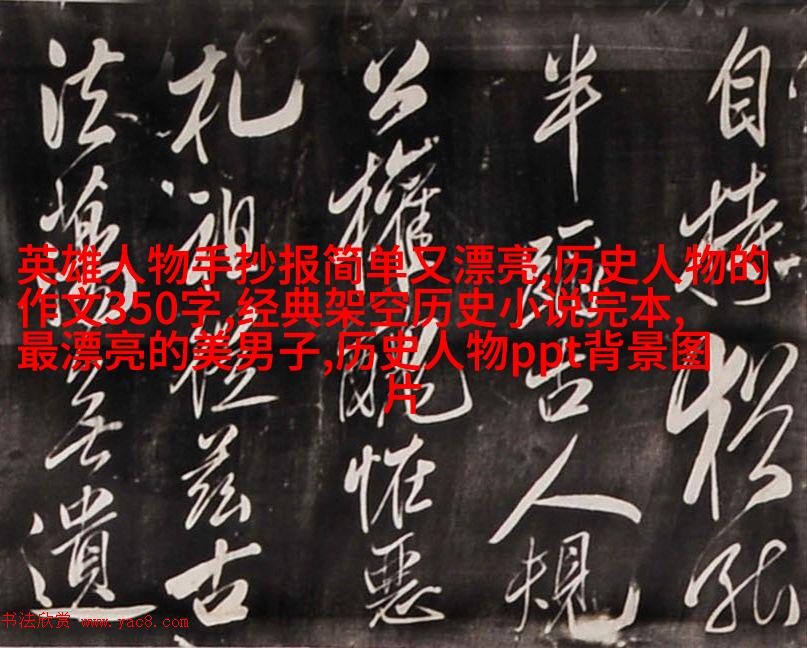 英雄人物手抄报简单又漂亮,历史人物的
作文350字,经典架空历史小说完本,
最漂亮的美男子,历史人物ppt背景图
片
自持猶能
半蹈古人規
公權醜怪惡
札祖從茲古
法蕩無遺
书法欣赏 www.yac8.com